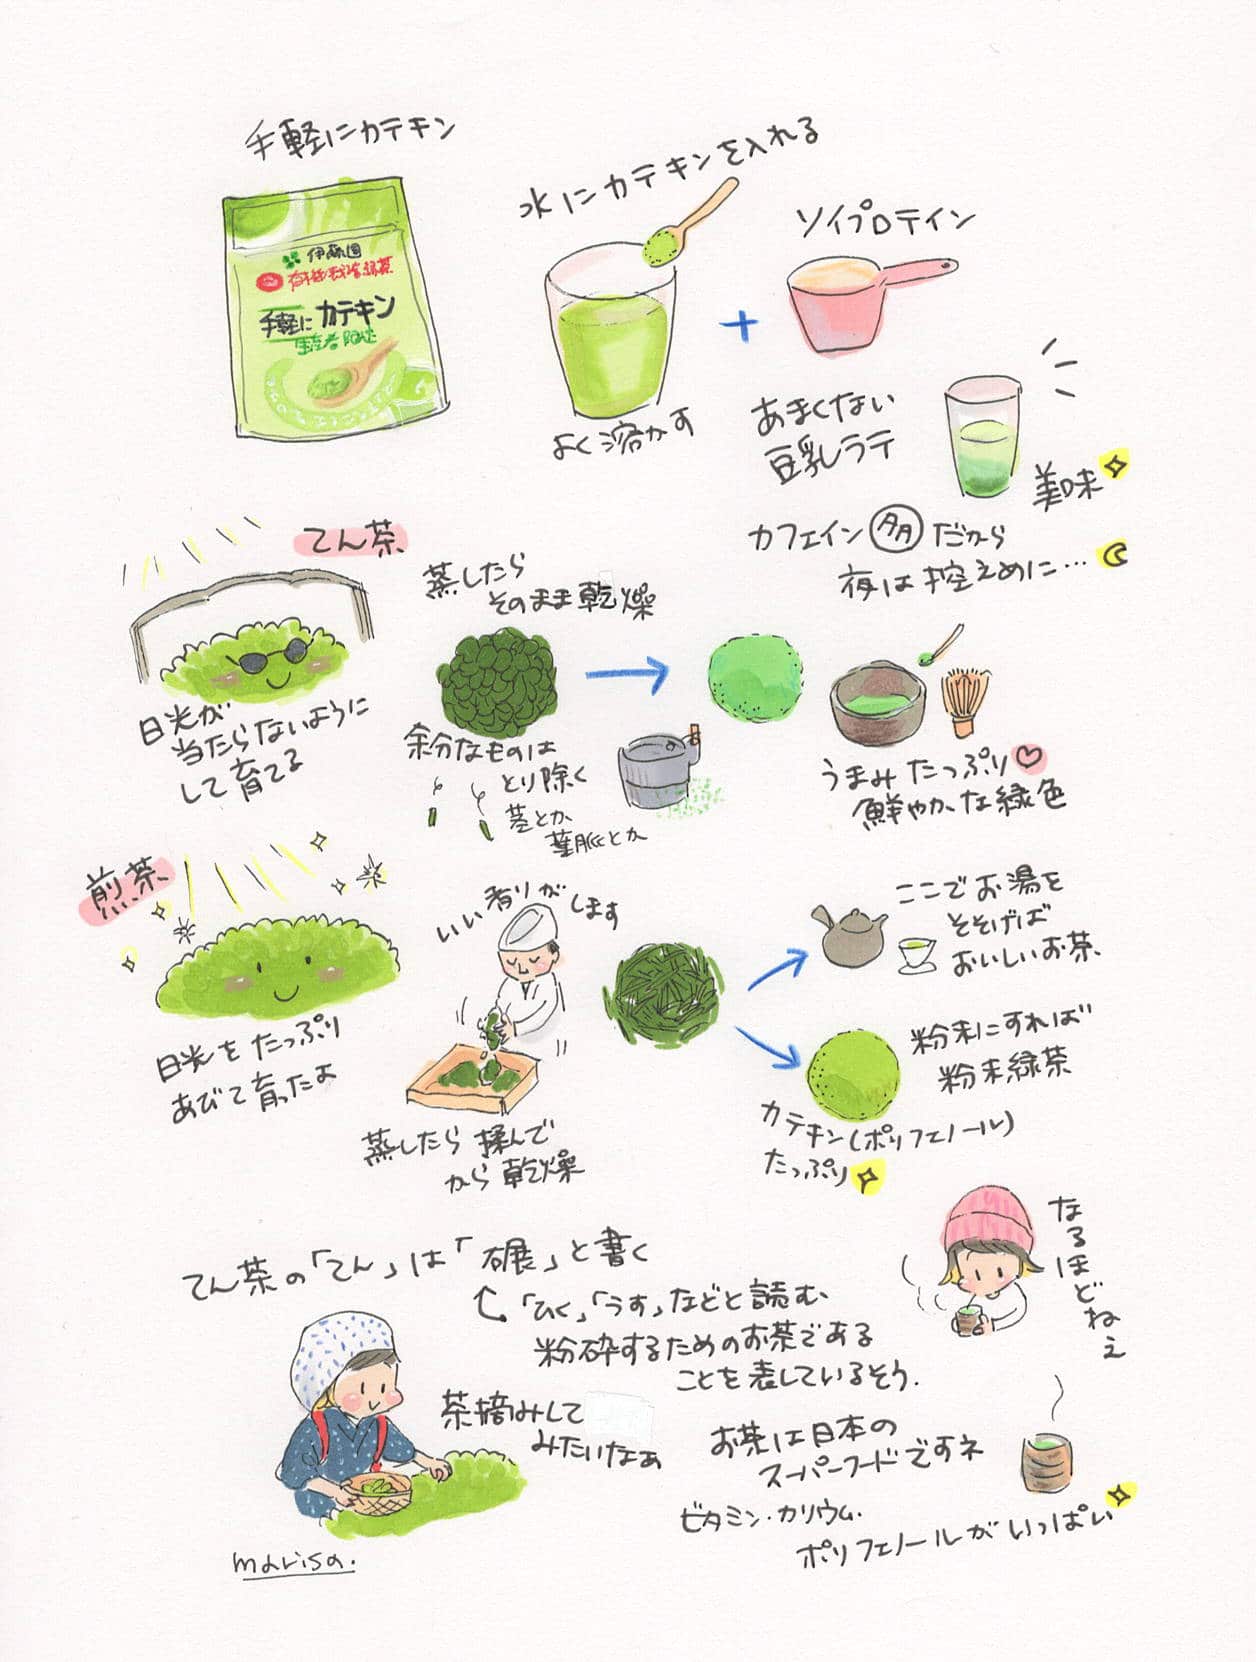 手軽にカテキン
伊藤園
有機栽培緑茶
手軽にカテキン
生産者限定
水にカテキンを入れる
よく溶かす
+
ソイプロテイン
あまくない
豆乳ラテ
美味
カフェイン多だから
夜は控えめに…
てん茶
日光が
当たらないように
して育てる
蒸したら
そのまま乾燥
余分なものは
とり除く
茎とか
葉脈とか
うまみたっぷり♡
鮮やかな緑色
煎茶
日光をたっぷり
あびて育ったよ
いい香りがします
蒸したら揉んで
から乾燥
ここでお湯を
そそげば
おいしいお茶
粉末にすれば
粉末緑茶
カテキン(ポリフェノール)
たっぷり
てん茶の「てん」は「碾」と書く
「ひく」「うす」などと読む、
粉砕するためのお茶である
ことを表しているそう.
なるほどねぇ
茶摘みして
みたいなぁ
お茶は日本の
スーパーフードですネ
ビタミン・カリウム.
ポリフェノールがいっぱい
marisa.